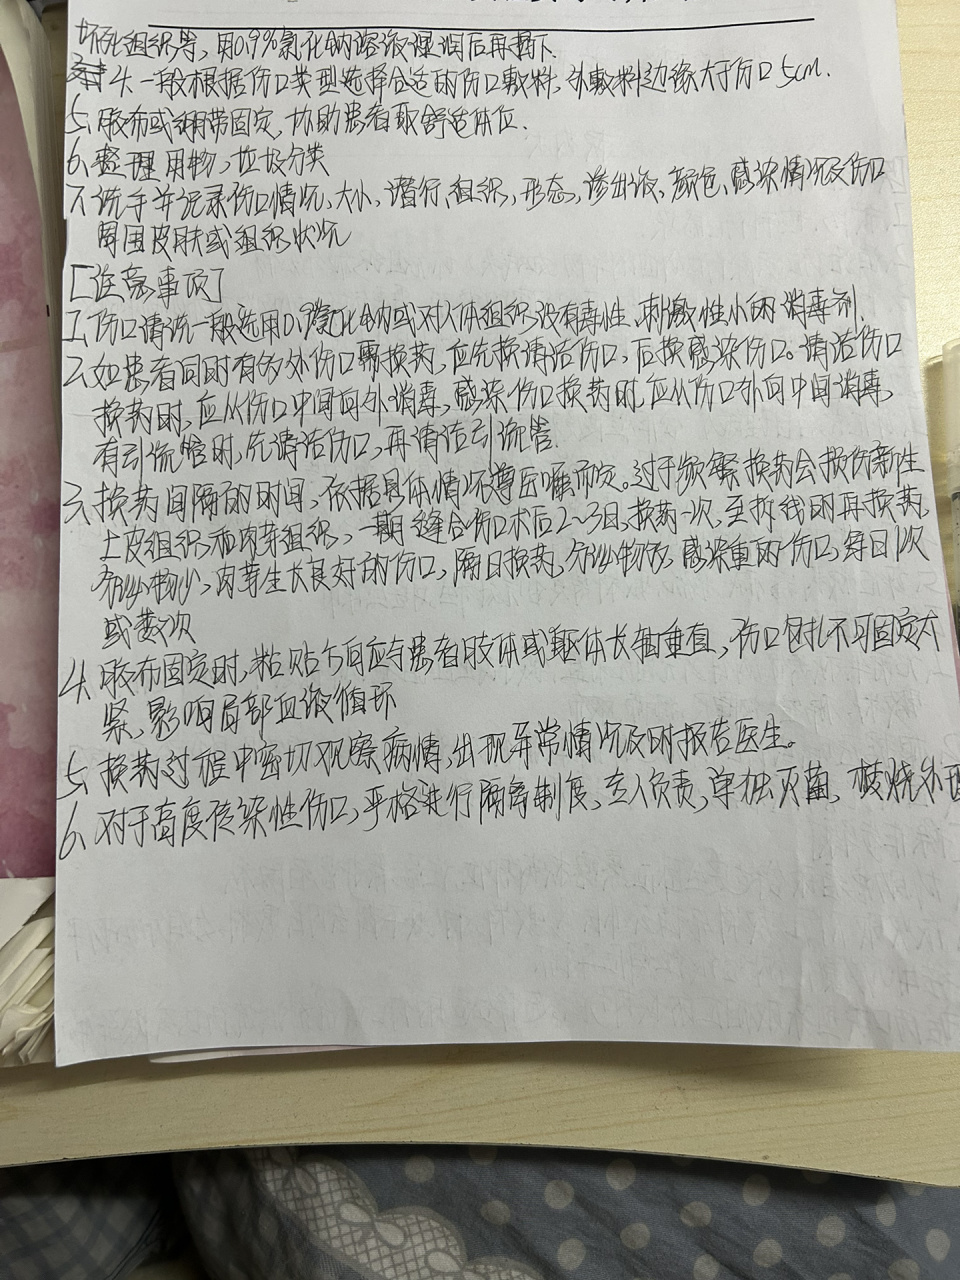 坏死组织等，用0.9%氯化钠溶液湿润后再揭下.
4.一般根据伤口类型选择合适的伤口敷料，外敷料边缘大于伤口5cm.
5、胶布或绷带固定，协助患者取舒适体位.
6、整理用物，垃圾分类
7.洗手并记录伤口情况，大小、潜行、组织，形态，渗出液、颜色、感染情况及伤口
周围皮肤或组织状况
[注意事项]
1.伤口清洗一般选用0.9%氯化钠或对人体组织没有毒性、刺激性小的消毒剂.
2、如患者同时有多处伤口需换药，应先换清洁伤口，后换感染伤口。清洁伤口
换药时，应从伤口中间向外消毒，感染伤口换药时，应从伤口外向中间消毒，
有引流管时，先清洁伤口，再清洁引流管.
3、换药间隔的时间，依据具体情况遵医嘱而定。过于频繁换药会损伤新生
上皮组织和肉芽组织，一期缝合伤口术后2~3日，换药一次，至拆线时再换药，
分泌物少，肉芽生长良好的伤口，隔日换药，分泌物多，感染重的伤口，每日1次
或数次
4、胶布固定时，粘贴方向应与患者肢体或躯体长轴垂直，伤口包扎不可固定太
紧，影响局部血液循环
5、换药过程中密切观察病情，出现异常情况及时报告医生。
6、对于高度传染性伤口，严格进行隔离制度，专人负责，单独灭菌，焚烧处理